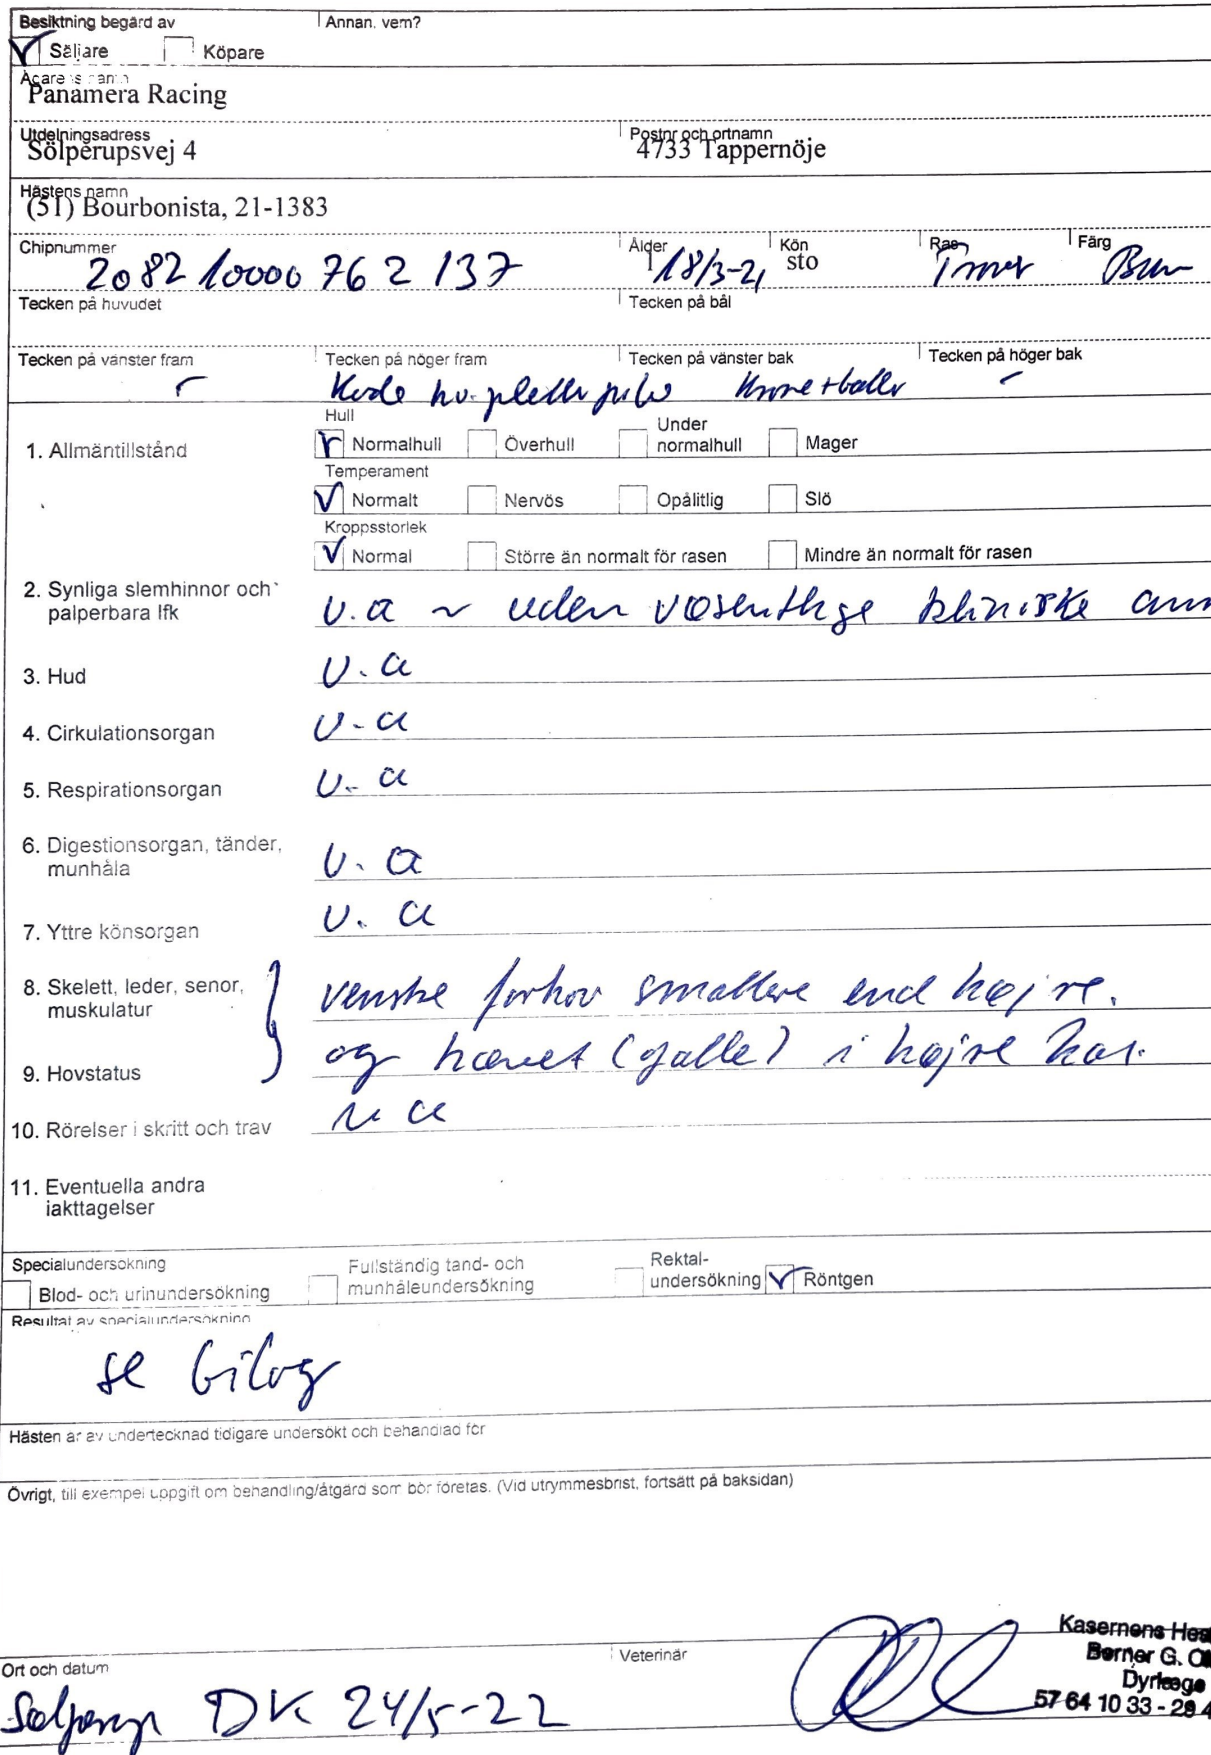 Besiktning begärd av Annan. vem?
Säljare Köpare
Ägarens namn
Panamera Racing
Utdelningsadress Postnr och ortnamn
Sölperupsvej 4 4733 Tappernöje
Hästens namn
(51) Bourbonista, 21-1383
Chipnummer Ålder Kön Ras Färg
208210000762137 18/3-21 sto
Tecken på huvudet Tecken på bål
Tecken på vänster fram Tecken på höger fram Tecken på vänster bak Tecken på höger bak
- Kode hv. pletter Krone + baller -
Hull
1. Allmäntillstånd Normalhull Överhull Under normalhull Mager
Temperament
Normalt Nervös Opålitlig Slö
Kroppsstorlek
Normal Större än normalt för rasen Mindre än normalt för rasen
2. Synliga slemhinnor och
palperbara lfk
v.a ~ uden væsentlige kliniske anm
3. Hud v.a
4. Cirkulationsorgan v.a
5. Respirationsorgan v.a
6. Digestionsorgan, tänder,
munhåla v.a
7. Yttre könsorgan v.a
8. Skelett, leder, senor,
muskulatur
venstre forhov smallere end højre.
9. Hovstatus og hævet (galle) i højre has.
10. Rörelser i skritt och trav u a
11. Eventuella andra
iakttagelser
Specialundersökning
Blod- och urinundersökning Fullständig tand- och munhåleundersökning Rektal-undersökning Röntgen
Resultat av specialundersökning
se bilag
Hästen är av undertecknad tidigare undersökt och behandlad för
Övrigt, till exempel uppgift om behandling/åtgärd som bör företas. (Vid utrymmesbrist, fortsätt på baksidan)
Kasernens Hes
Berner G. Ol
Ort och datum Veterinär
Dyrlæge
57 64 10 33 - 29 4
DK 24/5-22